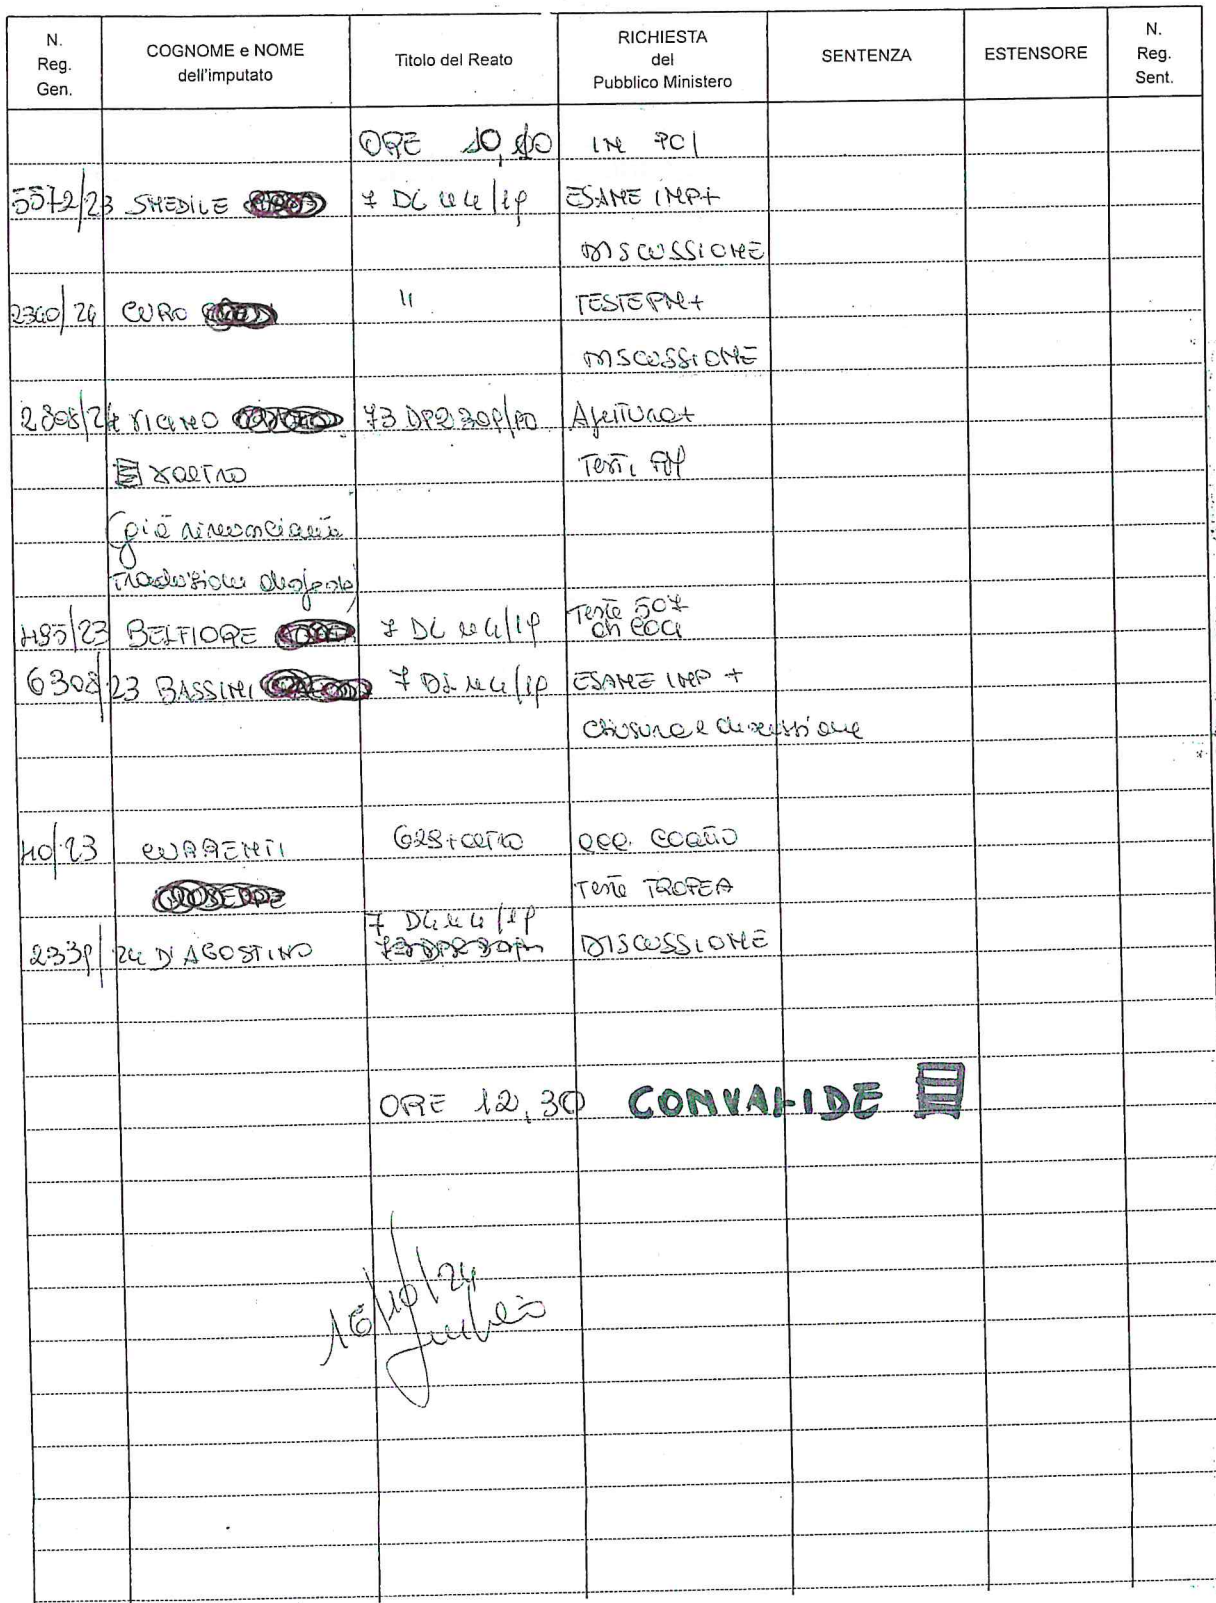 N. Reg. Gen. COGNOME e NOME dell'imputato Titolo del Reato RICHIESTA del Pubblico Ministero SENTENZA ESTENSORE N. Reg. Sent.
ORE 10,10 IN PCI
5572/23 SMEDILE 7 DL 4/19 ESAME IMP+
DISCUSSIONE
2340/24 CURO " TESTE PM+
DISCUSSIONE
2808/24 73 DPR 309/90 Apertura+
xaltro Testi PM
(già rinunciante
traduzione
495/23 BELFIORE 7 DL 4/19 Teste 507
6308/23 BASSINI 7 DL 4/19 ESAME IMP +
chiusura e discussione
40/23 CURRENTI 628+altro
Teste TROPEA
7 DL 4/19
2339/24 D'AGOSTINO DISCUSSIONE
ORE 12,30 CONVALIDE
16/10/24